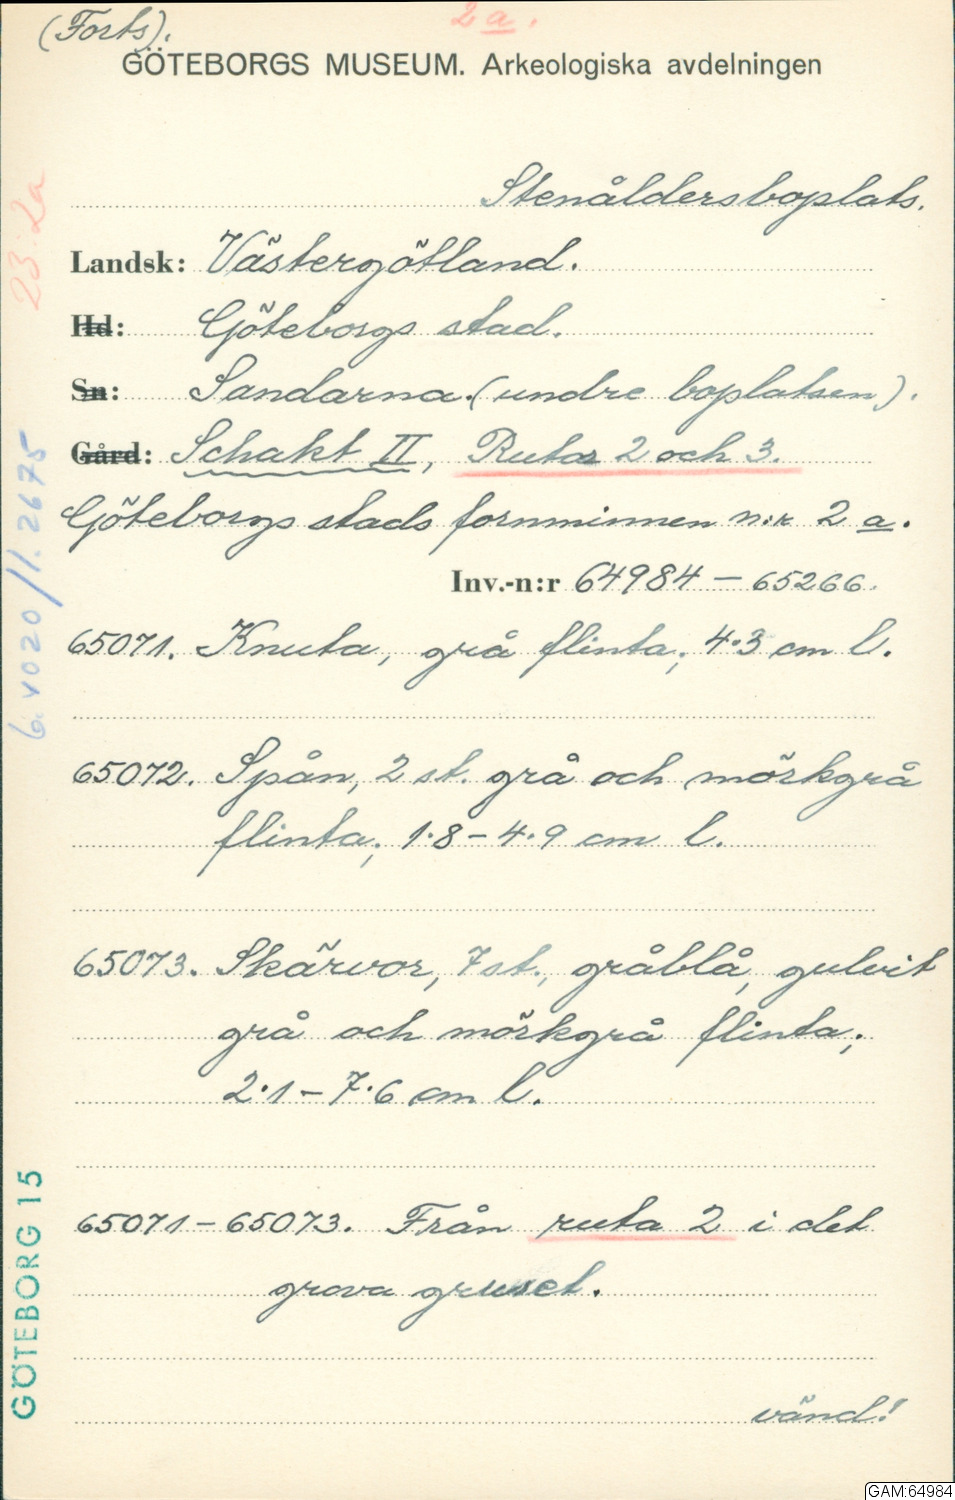 (Forts).
2 a.
GÖTEBORGS MUSEUM. Arkeologiska avdelningen
Stenåldersboplats.
Landsk: Västergötland.
Hd: Göteborgs stad.
Sn: Sandarna. (undre boplatsen).
Gård: Schakt II, Rutor 2 och 3.
Göteborgs stads fornminnen n:r 2 a.
Inv.-n:r 64984 – 65266.
65071. Knuta, grå flinta; 4·3 cm l.
65072. Spån, 2 st. grå och mörkgrå
flinta; 1·8 – 4·9 cm l.
65073. Skärvor, 7 st., gråblå, gulvit
grå och mörkgrå flinta;
2·1 – 7·6 cm l.
65071 – 65073. Från ruta 2 i det
grova gruset.
vänd!
23:2a
GÖTEBORG 15
GAM:64984